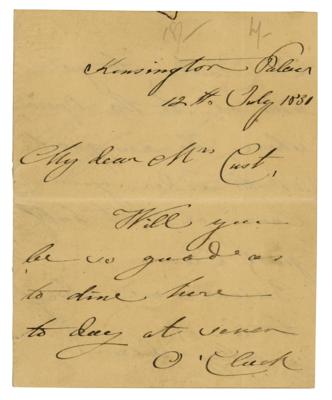 Kensington Palace
12th July 1831
My dear Mrs Cust,
Will you
be so good as
to dine here
to day at seven
O'Clock